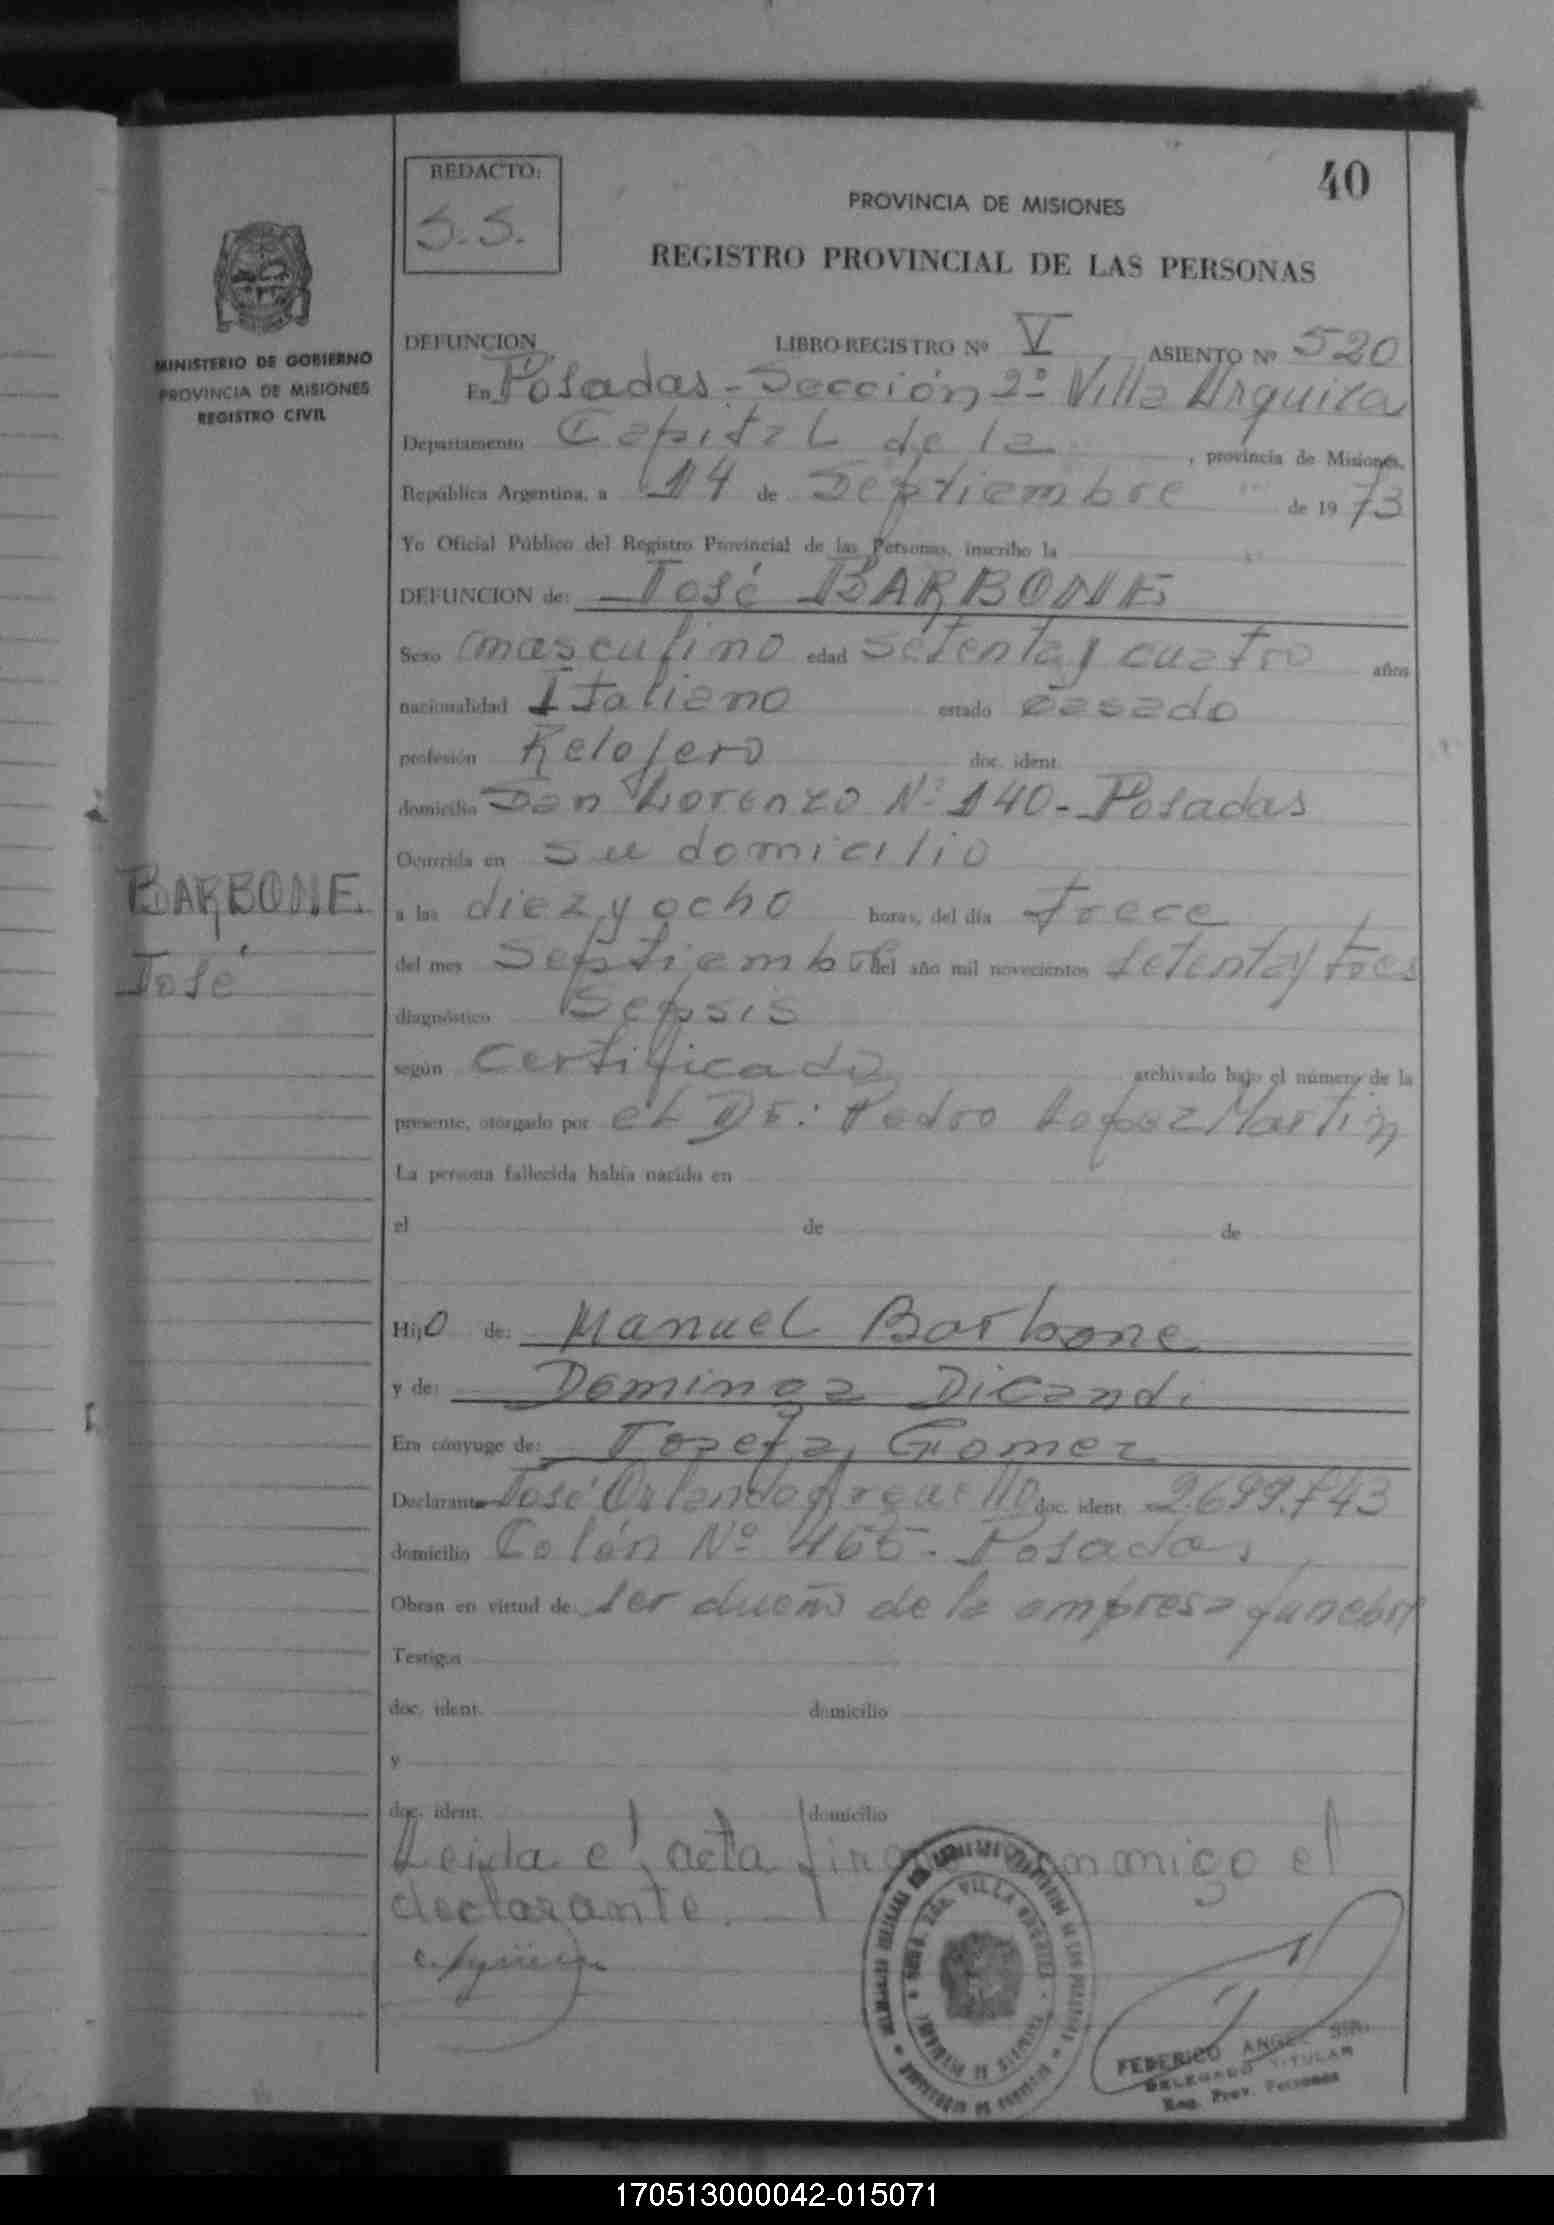 40
REDACTO:
S.S.
PROVINCIA DE MISIONES
REGISTRO PROVINCIAL DE LAS PERSONAS
MINISTERIO DE GOBIERNO
PROVINCIA DE MISIONES
REGISTRO CIVIL
DEFUNCION LIBRO REGISTRO Nº V, ASIENTO Nº 520
En Posadas - Sección 2º Villa Urquiza
Departamento Capital de la, provincia de Misiones,
República Argentina, a 14 de Septiembre de 1973
Yo Oficial Público del Registro Provincial de las Personas, inscribo la
DEFUNCION de: José BARBONE
Sexo masculino edad setenta y cuatro años
nacionalidad Italiano estado casado
profesión Relojero doc. ident.
domicilio San Lorenzo Nº 140 - Posadas
Ocurrida en su domicilio
BARBONE
José
a las diez y ocho horas, del día trece
del mes Septiembre del año mil novecientos setenta y tres
diagnóstico Sepsis
según certificado archivado bajo el número de la
presente, otorgado por el Dr: Pedro Lopez Martin
La persona fallecida había nacido en
el de de
Hijo de: Manuel Barbone
y de: Dominga Dicandi
Era cónyuge de: Josefa Gomez
Declarante José Orlando Arguello doc. ident. 2.699.743
domicilio Colón Nº 465 - Posadas
Obran en virtud de ser dueño de la empresa funebre
Testigos
doc. ident. domicilio
y
doc. ident. domicilio
Leida el acta firma conmigo el
declarante.
FEDERICO ANGEL
DELEGADO TITULAR
Reg. Prov. Personas
170513000042-015071